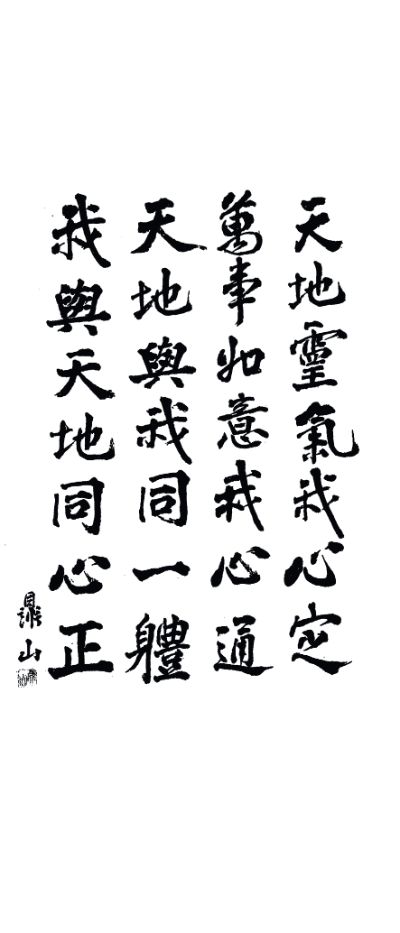 天地靈氣我心定
萬事如意我心通
天地與我同一體
我與天地同心正
鼎山